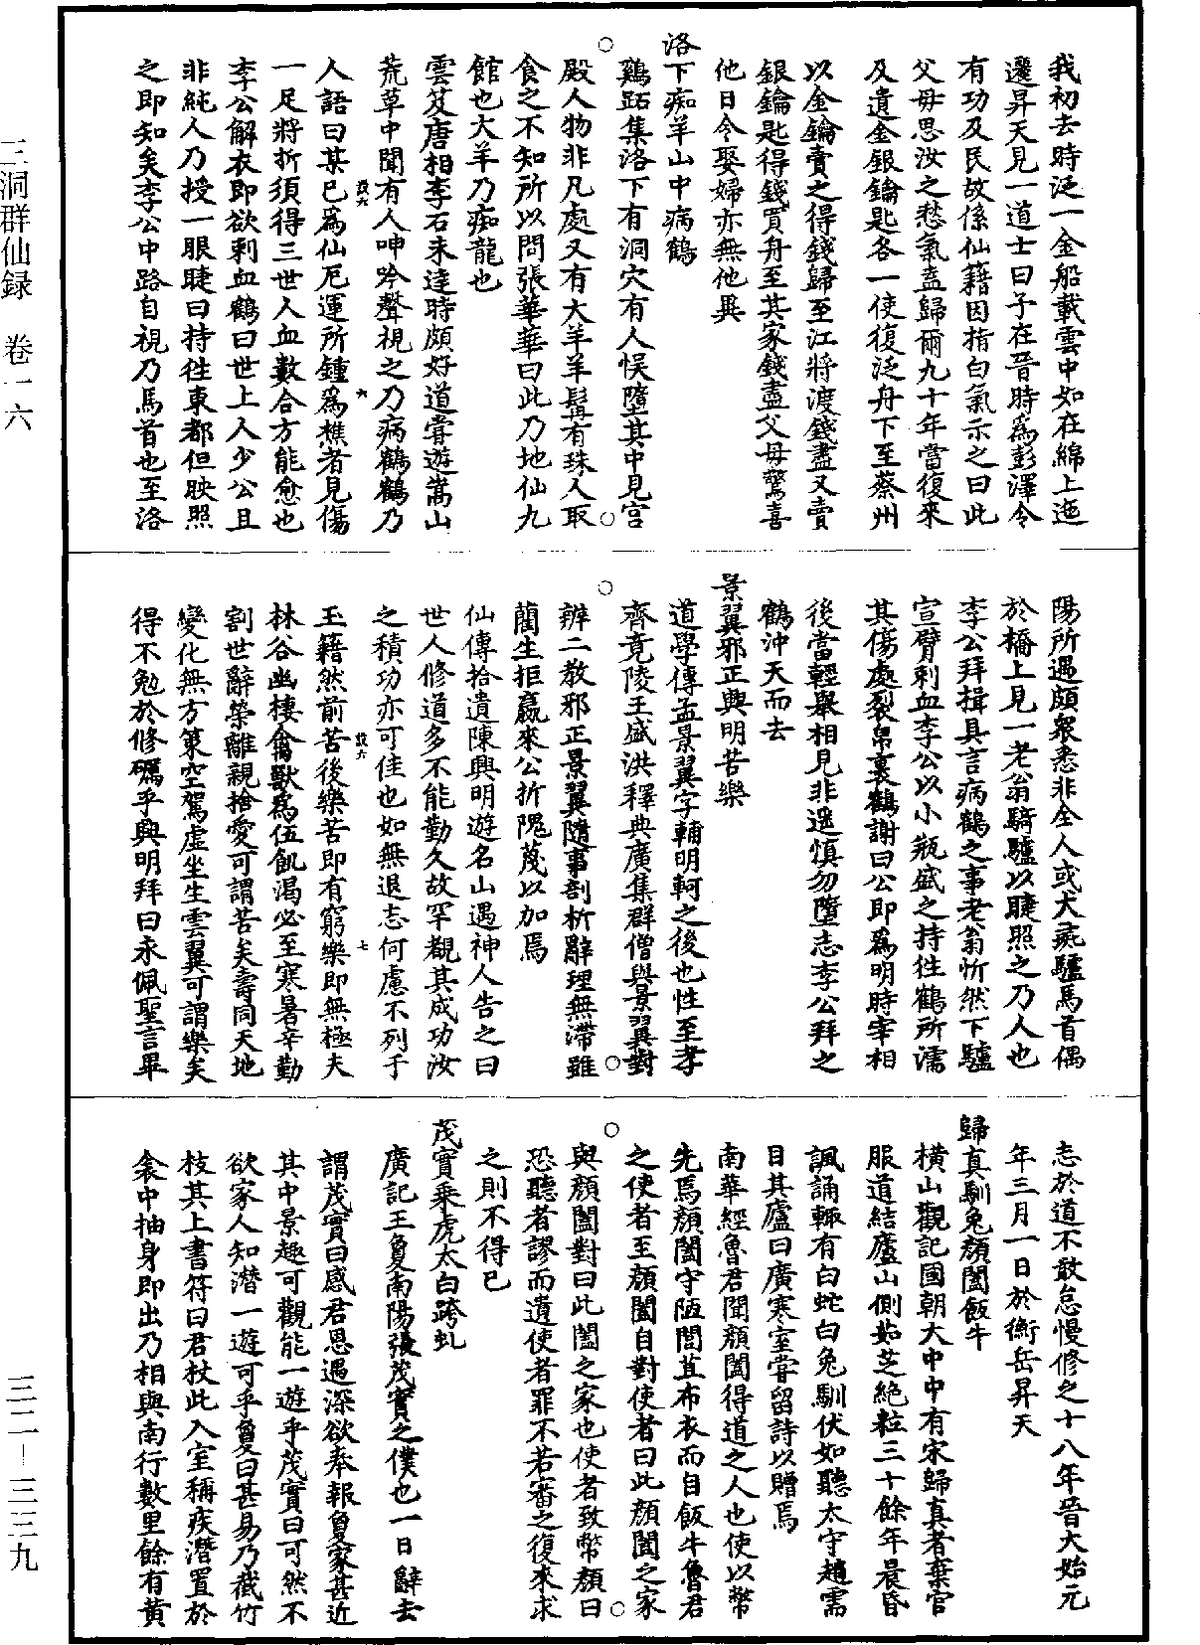 我初去時泛一金船載雲中如在綿上迤
邐昇天見一道士曰子在晉時爲彭澤令
有功及民故係仙籍因指白氣示之曰此
父母思汝之愁氣盍歸爾九十年當復來
及遺金銀鑰匙各一使復泛舟下至蔡州
以金鑰賣之得錢歸至江將渡錢盡又賣
銀鑰匙得錢買舟至其家錢盡父母驚喜
他日令娶婦亦無他異
洛下痴羊山中病鶴
鷄跖集洛下有洞穴有人悮墮其中見宮
殿人物非凡處又有大羊羊髯有珠人取
食之不知所以問張華華曰此乃地仙九
館也大羊乃痴龍也
雲笈唐相李石未達時頗好道嘗遊嵩山
荒草中聞有人呻吟聲視之乃病鶴鶴乃
人語曰某已爲仙厄運所鍾爲樵者見傷
一足將折須得三世人血數合方能愈也
李公解衣即欲刺血鶴曰世上人少公且
非純人乃授一眼睫曰持徃東都但映照
之即知矣李公中路自視乃馬首也至洛
陽所遇頗衆悉非全人或犬彘驢馬首偶
於橋上見一老翁騎驢以睫照之乃人也
李公拜揖具言病鶴之事老翁忻然下驢
宣臂刺血李公以小瓶盛之持徃鶴所濡
其傷處裂帛裹鶴謝曰公即爲明時宰相
後當輕舉相見非遥慎勿墮志李公拜之
鶴沖天而去
景翼邪正興明苦樂
道學傳孟景翼字輔明軻之後也性至孝
齊竟陵王盛洪釋典廣集群僧與景翼對
辨二教邪正景翼隨事剖析辭理無滯雖
藺生拒嬴來公折隗蔑以加焉
仙傳拾遺陳興明遊名山遇神人告之曰
世人修道多不能勤久故罕覩其成功汝
之積功亦可佳也如無退志何慮不列于
玉籍然前苦後樂苦即有窮樂即無極夫
林谷幽棲禽獸爲伍飢渴必至寒暑辛勤
割世辭榮離親捨愛可謂苦矣壽同天地
變化無方策空駕虛坐生雲翼可謂樂矣
得不勉於修礪乎興明拜曰永佩聖言畢
志於道不敢怠慢修之十八年晉大始元
年三月一日於衡岳昇天
歸真馴兔顏闔飯牛
橫山觀記國朝大中中有宋歸真者棄官
服道結廬山側茹芝絶粒三十餘年晨昏
諷誦輙有白蛇白兔馴伏如聽太守趙需
目其廬曰廣寒室嘗留詩以贈焉
南華經魯君聞顏闔得道之人也使以幣
先焉顏闔守陋閭苴布衣而自飯牛魯君
之使者至顏闔自對使者曰此顏闔之家
與顏闔對曰此闔之家也使者致幣顏曰
恐聽者謬而遺使者罪不若審之復來求
之則不得已
茂實乗虎太白跨虬
廣記王敻南陽張茂實之僕也一日辭去
謂茂實曰感君恩遇深欲奉報敻家甚近
其中景趣可觀能一遊乎茂實曰可然不
欲家人知潛一遊可乎敻曰甚易乃截竹
枝其上書符曰君杖此入室稱疾潛置於
衾中抽身即出乃相與南行數里餘有黄
三洞群仙録　卷一六
三二－三三九
設六　六
設六　七